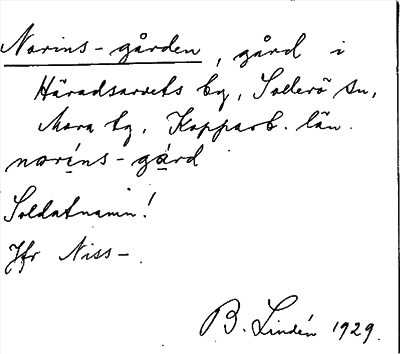 Norins-gården, gård i
Häradsarvets by, Sollerö sn,
Mora tg, Kopparb. län.
norins-gård
Soldatnamn!
Jfr Niss-.
B. Lindén 1929.